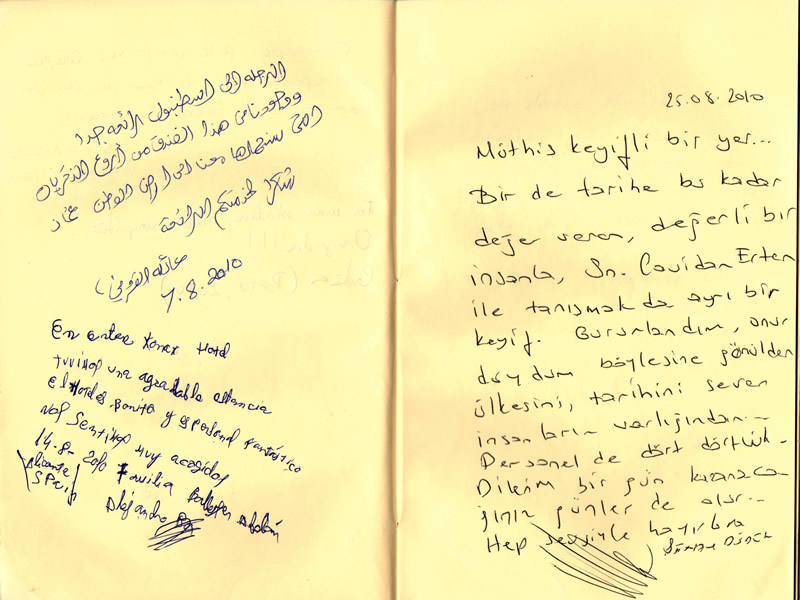 الرحلة الى اسطنبول رائعة جدا
ووجودنا في هذا الفندق من أروع الذكريات
التي سنحملها معنا الى ارض الوطن عمان
شكرا لخدمتكم الرائعة
عائلة
7.8.2010
En enter Konax Hotel
tuvimos una agradable estancia
el Hotel es Bonito y el personal fantástico
nos sentimos muy acogidos
14-8-2010 Familia
Alicante
Spain
Alejandro
25.08.2010
Müthiş keyifli bir yer...
Bir de tarihe bu kadar
değer veren, değerli bir
insanla, Sn. Cavidan Erten
ile tanışmak da ayrı bir
keyif. Gururlandım, onur
duydum böylesine gönülden
ülkesini, tarihini seven
insanların varlığından...
Personel de dört dörtlük.
Dilerim bir gün kazanaca
ğınız günler de olur...
Hep sevgiyle kayırlara